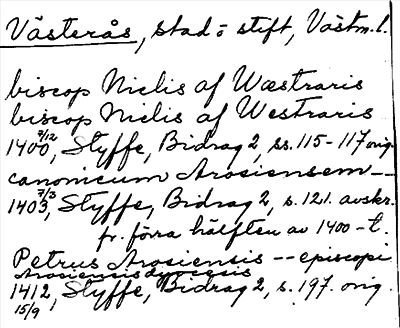 Västerås, stad o stift, Västm.l.
biscop Niclis af Wæstraris
biscop Niclis af Westraris
1400 7/12, Styffe, Bidrag 2, ss. 115-117 orig.
canonicum Arosiensem--
1403 7/3, Styffe, Bidrag 2, s. 121. avskr.
fr. förra hälften av 1400-t.
Petrus Arosiensis -- episcopi
Arosiensis dyocesis
1412, Styffe, Bidrag 2, s. 197. orig.
15/9